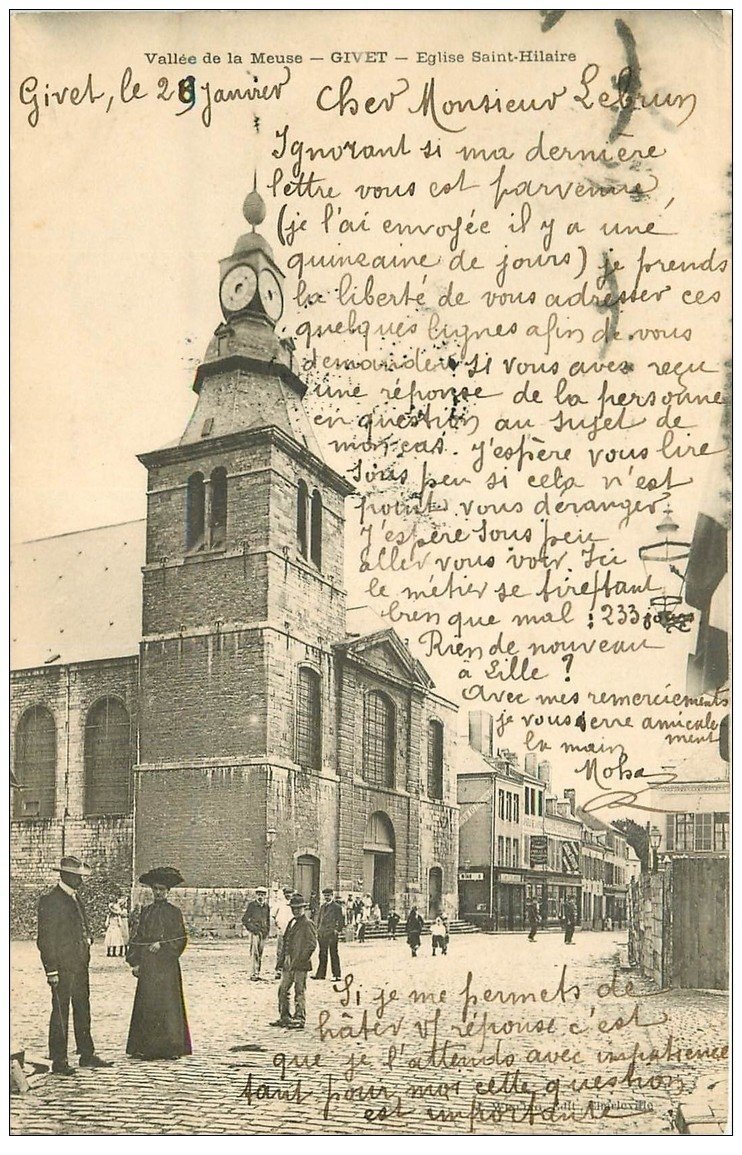 Vallée de la Meuse — GIVET — Eglise Saint-Hilaire
Givet, le 28 janvier
Cher Monsieur Lebrun
Ignorant si ma dernière
lettre vous est parvenue,
(je l'ai envoyée il y a une
quinzaine de jours) je prends
la liberté de vous adresser ces
quelques lignes afin de vous
demander si vous aves reçu
une réponse de la personne
en question au sujet de
mon cas. J'espère vous lire
sous peu si cela n'est
point vous déranger
J'espère sous peu
aller vous voir. Ici
le métier se tire tant
bien que mal : 233 jours
Rien de nouveau
à Lille ?
Avec mes remerciements
je vous serre amicale
ment
la main
Moha
Si je me permets de
hâter v/ réponse c'est
que je l'attends avec impatience
tant pour moi cette question
est importante